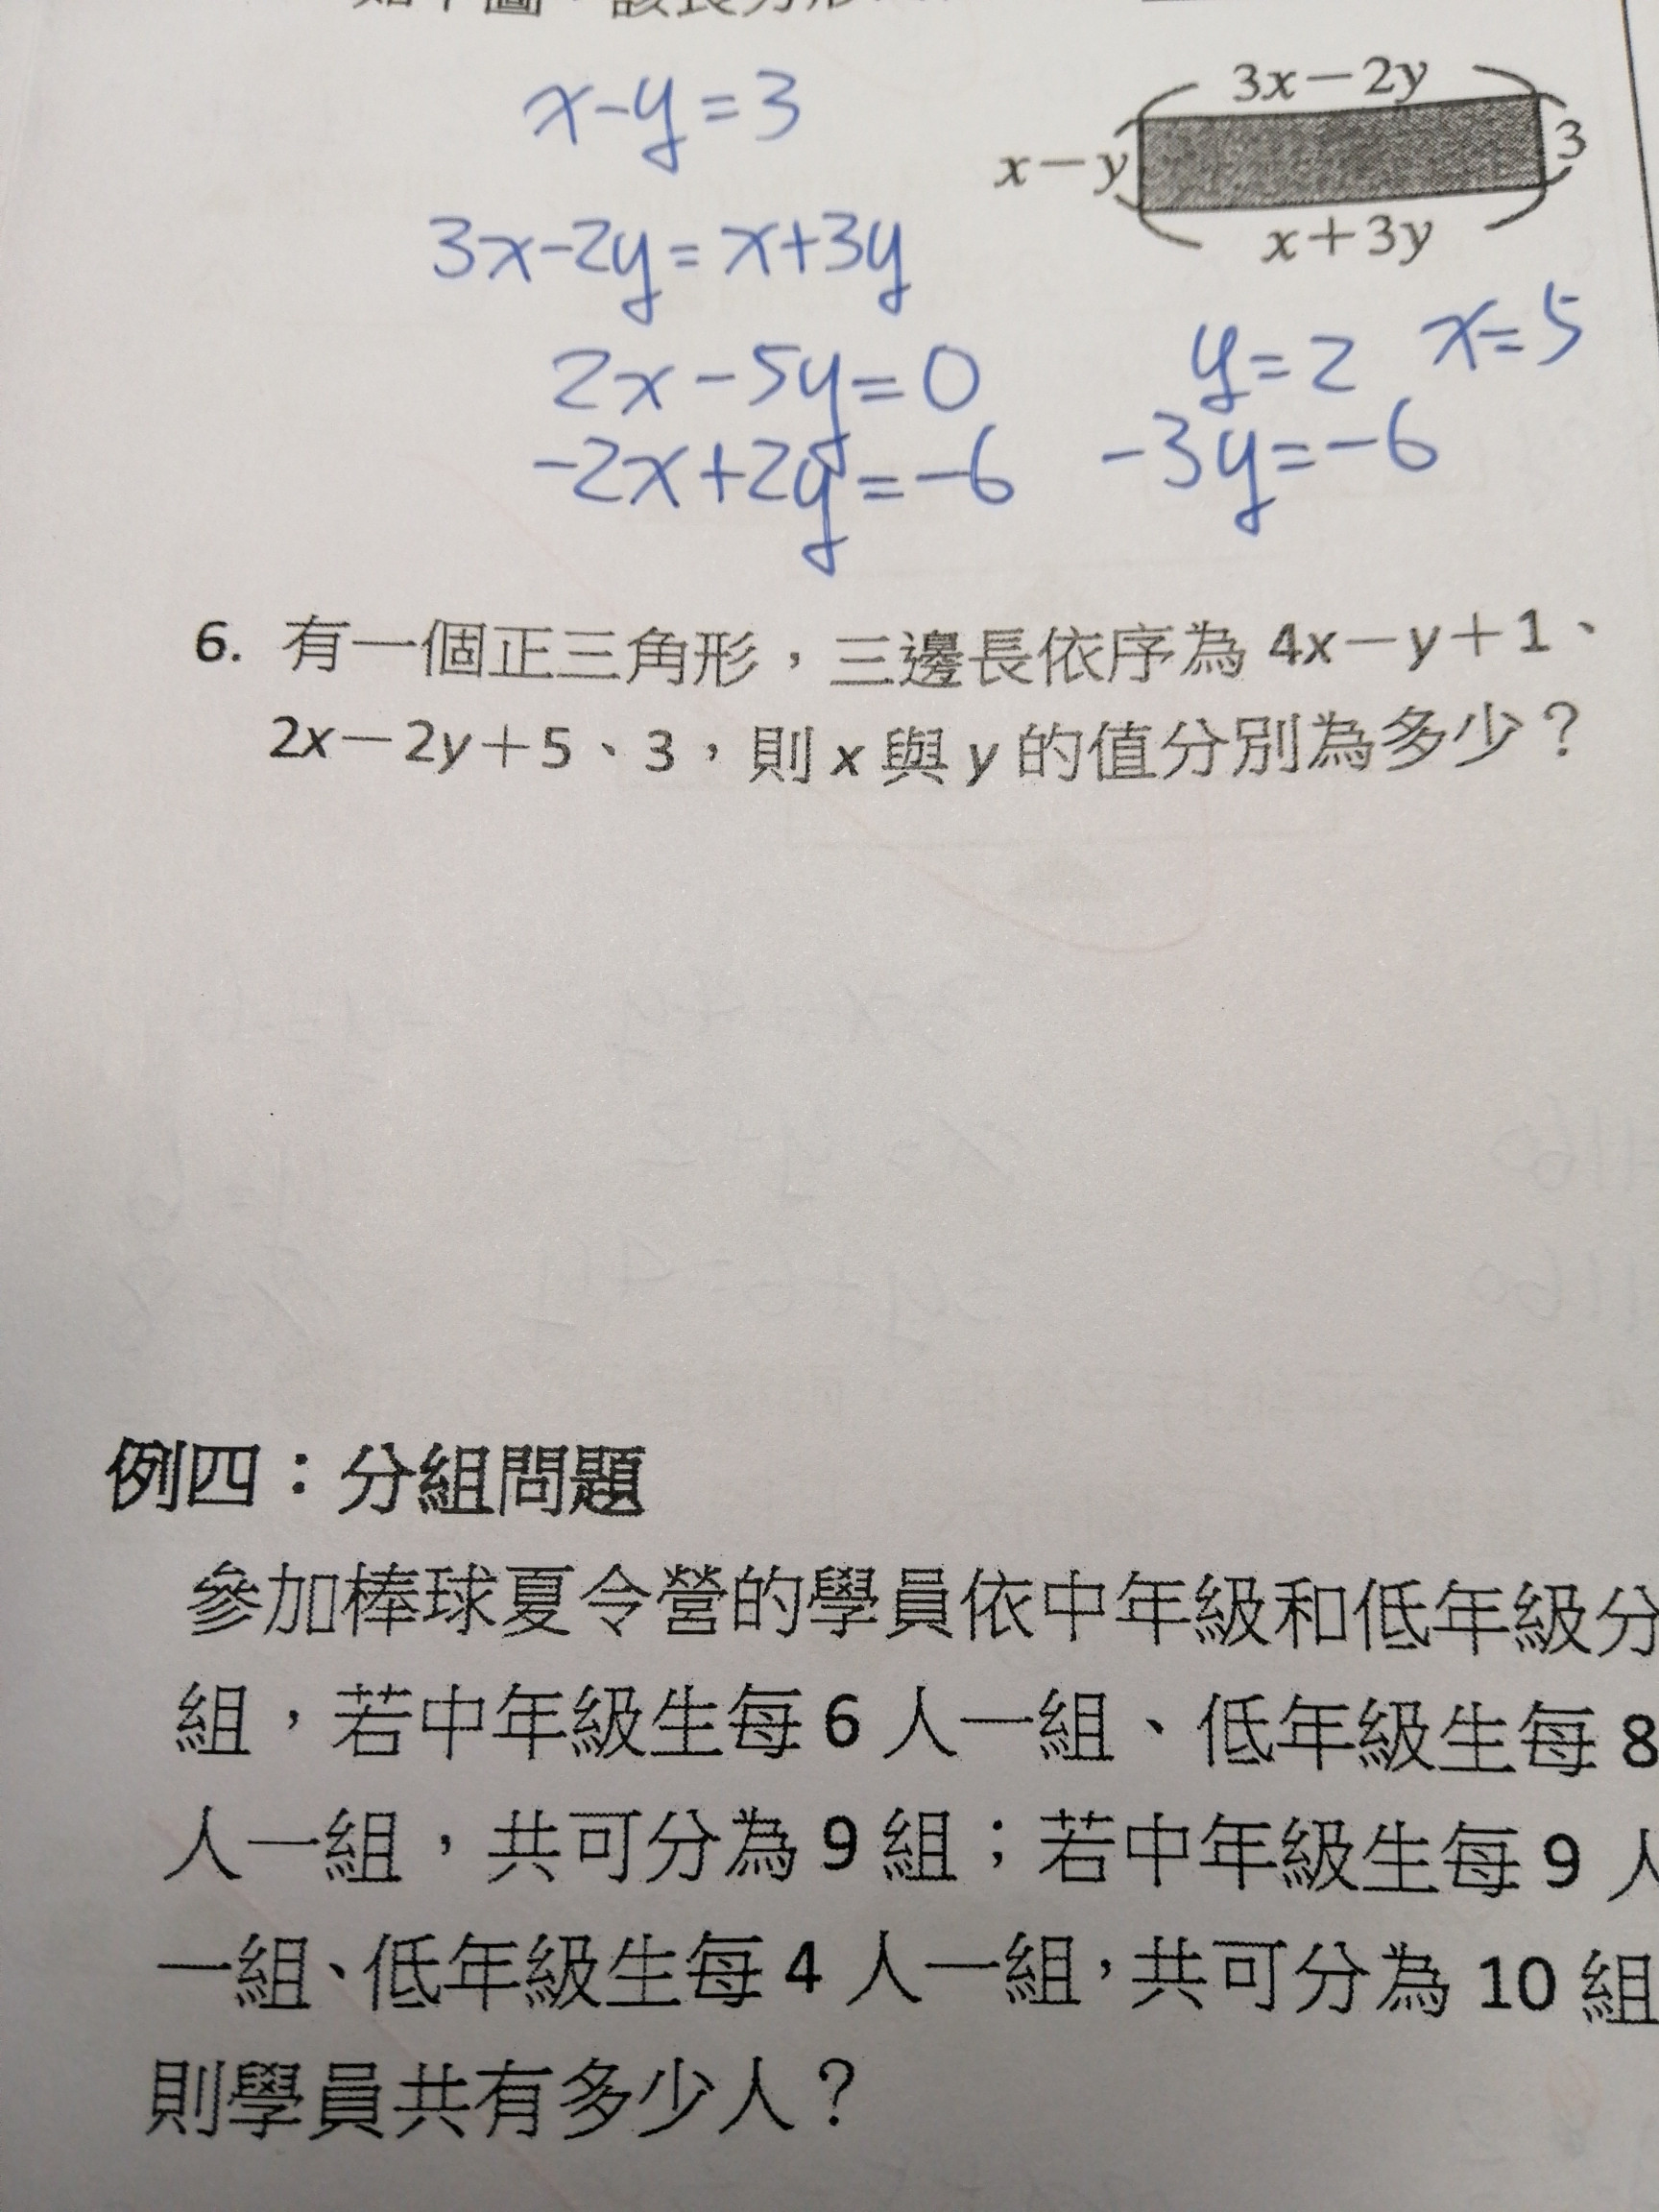 x-y=3
3x－2y
x－y
3
x＋3y
3x-2y=x+3y
2x-5y=0
y=2 x=5
-2x+2y=-6
-3y=-6
6. 有一個正三角形，三邊長依序為 4x－y＋1、
2x－2y＋5、3，則 x 與 y 的值分別為多少？
例四：分組問題
參加棒球夏令營的學員依中年級和低年級分
組，若中年級生每 6 人一組、低年級生每 8
人一組，共可分為 9 組；若中年級生每 9 人
一組、低年級生每 4 人一組，共可分為 10 組
則學員共有多少人？